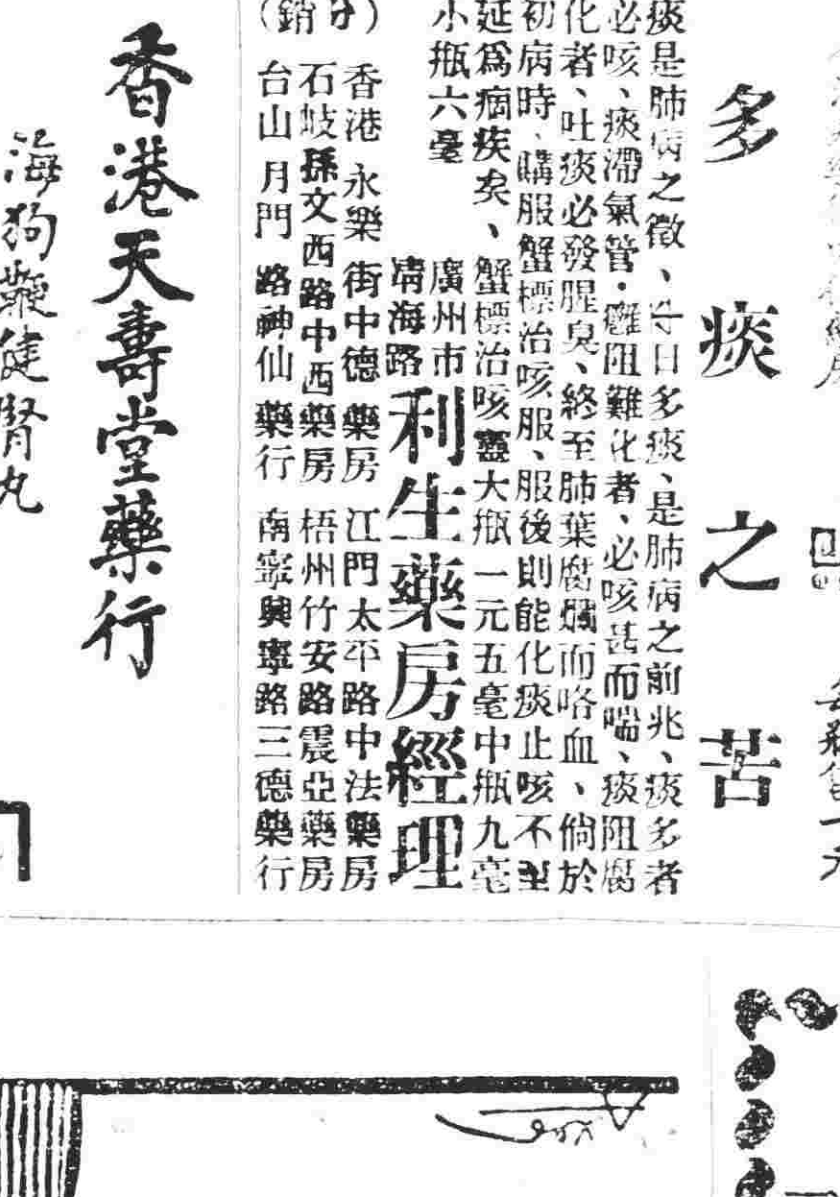 多痰之苦
痰是肺病之徵、日多痰、是肺病之前兆、痰多者
必咳、痰滯氣管·難阻難化者、必咳甚而喘、痰阻腐
化者、吐痰必發腥臭、終至肺葉腐爛而咯血、倘於
初病時、購服蟹標治咳服、服後則能化痰止咳不
延爲痼疾矣、蟹標治咳靈大瓶一元五毫中瓶九毫
小瓶六毫
廣州市
靖海路
利生藥房經理
(分銷)
香港永樂街中德藥房江門太平路中法藥房
石岐孫文西路中西藥房梧州竹安路震亞藥房
台山月門路神仙藥行南寧興寧路三德藥行
香港天壽堂藥行
海狗鞭健腎丸